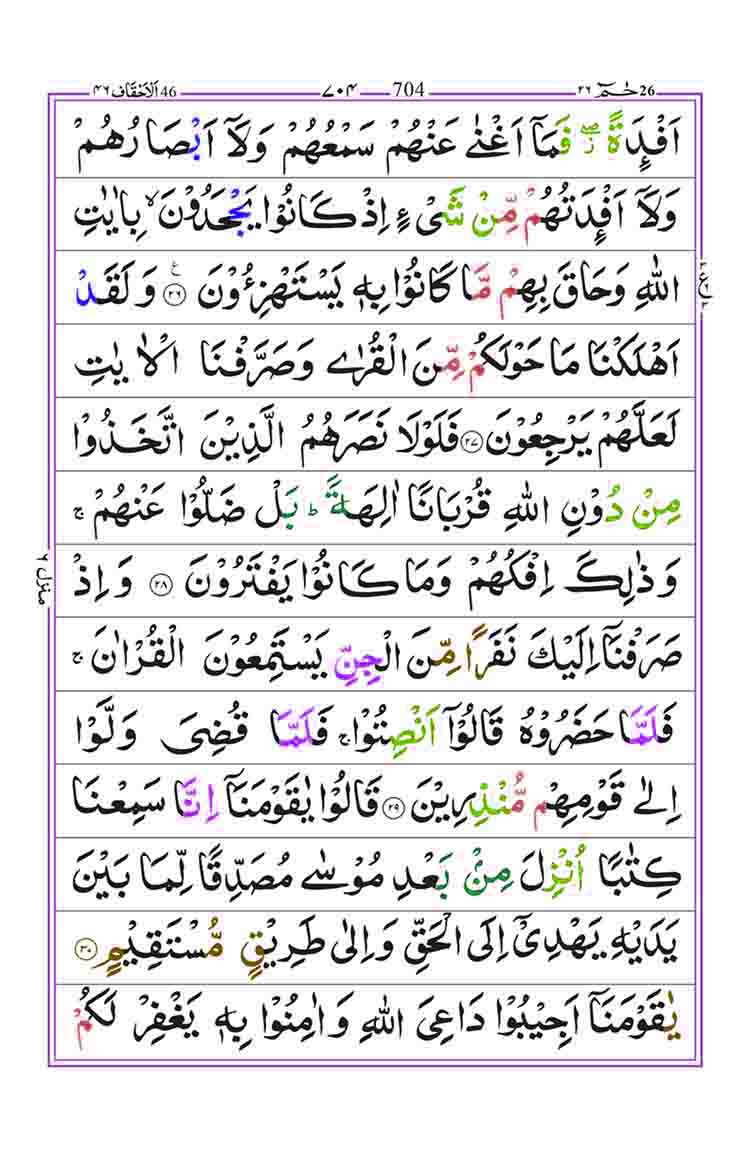 26 حٰمٓ ٢٦ 704 ٧٠٤ 46 اَلْاَحْقَاف ٤٦
اَفْـِٕدَةً ۖ ز فَمَاۤ اَغْنٰى عَنْهُمْ سَمْعُهُمْ وَلَاۤ اَبْصَارُهُمْ
وَلَاۤ اَفْـِٕدَتُهُمْ مِّنْ شَىْءٍ اِذْ كَانُوْا يَجْحَدُوْنَ ۙ بِاٰيٰتِ
اللّٰهِ وَحَاقَ بِهِمْ مَّا كَانُوْا بِهٖ يَسْتَهْزِءُوْنَ ۟ ع ٢٦ وَلَقَدْ
اَهْلَكْنَا مَا حَوْلَكُمْ مِّنَ الْقُرٰى وَصَرَّفْنَا الْاٰيٰتِ
لَعَلَّهُمْ يَرْجِعُوْنَ ٢٧ فَلَوْلَا نَصَرَهُمُ الَّذِيْنَ اتَّخَذُوْا
مِنْ دُوْنِ اللّٰهِ قُرْبَانًا اٰلِهَةً ؕ بَلْ ضَلُّوْا عَنْهُمْ ۚ
وَذٰلِكَ اِفْكُهُمْ وَمَا كَانُوْا يَفْتَرُوْنَ ٢٨ وَاِذْ
صَرَفْنَاۤ اِلَيْكَ نَفَرًا مِّنَ الْجِنِّ يَسْتَمِعُوْنَ الْقُرْاٰنَ ۚ
فَلَمَّا حَضَرُوْهُ قَالُوْۤا اَنْصِتُوْا ۚ فَلَمَّا قُضِىَ وَلَّوْا
اِلٰى قَوْمِهِمْ مُّنْذِرِيْنَ ٢٩ قَالُوْا يٰقَوْمَنَاۤ اِنَّا سَمِعْنَا
كِتٰبًا اُنْزِلَ مِنْۢ بَعْدِ مُوْسٰى مُصَدِّقًا لِّمَا بَيْنَ
يَدَيْهِ يَهْدِىْۤ اِلَى الْحَقِّ وَاِلٰى طَرِيْقٍ مُّسْتَقِيْمٍ ٣٠
يٰقَوْمَنَاۤ اَجِيْبُوْا دَاعِىَ اللّٰهِ وَاٰمِنُوْا بِهٖ يَغْفِرْ لَكُمْ
منزل ٦